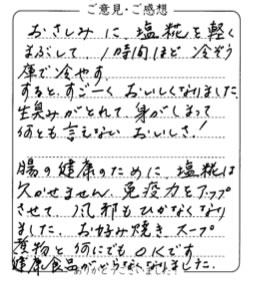 ご意見・ご感想
おさしみに、塩糀を軽く
まぶして、1時間ほど冷ぞう
庫で冷やす。
すると、すご〜くおいしくなりました。
生臭みがとれて、身がしまって
何とも言えないおいしさ!
腸の健康のために、塩糀は
欠かせません。免疫力をアップ
させて、風邪もひかなくなり
ました。お好み焼き、スープ
煮物と何にでもOKです
健康食品がいらなくなりました。